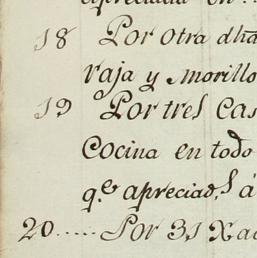 apreciada en
18 Por otra dha
raja y morillo
19 Por tres cas
Cocina en todo
q.e apreciad.s á
20..... Por 31